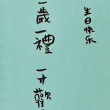 生日快乐
一歲一禮
一寸歡